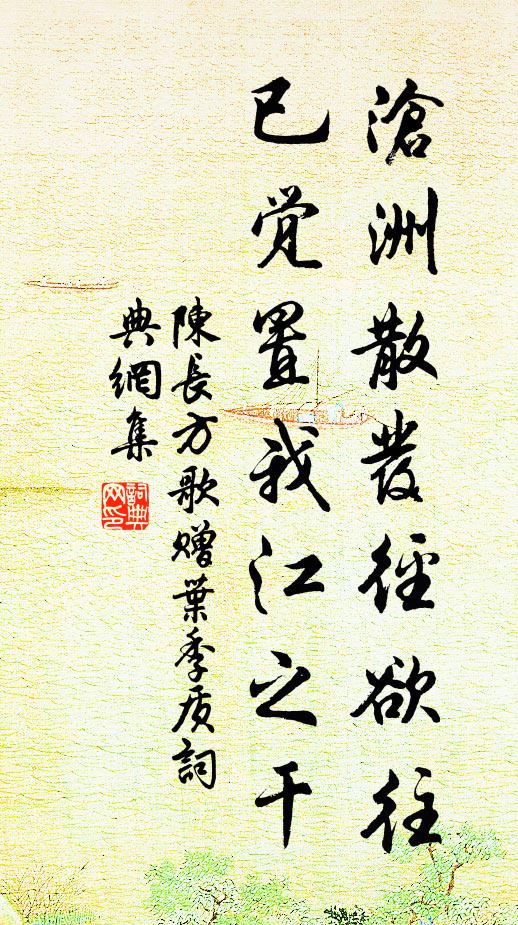 滄洲散發徑欲往
已覚置我江之干
陳長方歌贈葉季质詞
典網集
詞典网印